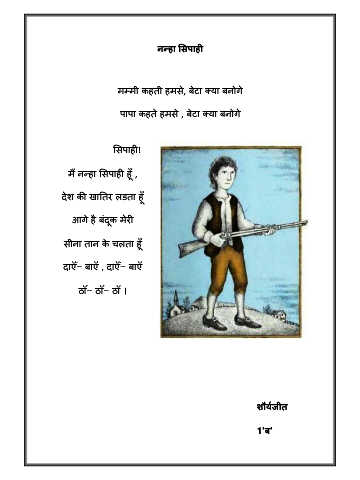 नन्हा सिपाही
मम्मी कहती हमसे, बेटा क्या बनोगे
पापा कहते हमसे , बेटा क्या बनोगे
सिपाही!
मैं नन्हा सिपाही हूँ ,
देश की खातिर लडता हूँ
आगे है बंदूक मेरी
सीना तान के चलता हूँ
दाएँ– बाएँ , दाएँ– बाएँ
ठाँ– ठाँ– ठाँ ।
शौर्यजीत
1'ब'